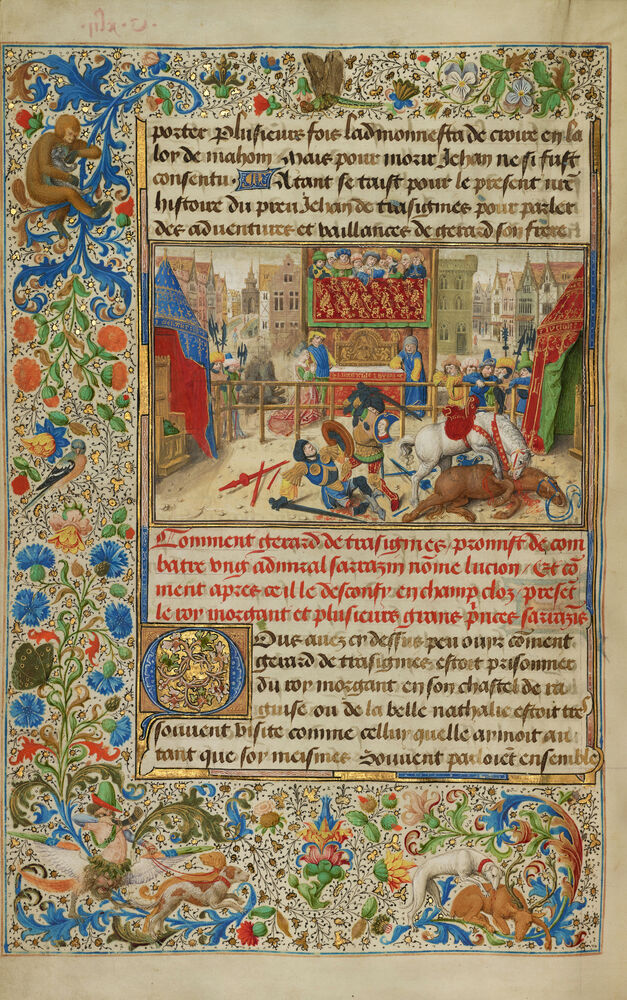 porter Plusieurs fois ladmonnesta de croire en la
loy de mahom Mais pour morir Jehan ne si fust
consentu. Atant se taist pour le present nre
histoire du preu Jehan de trasignies pour parler
des aduentures et vaillances de gerard son frere
Comment gerard de trasignies promist de com
batre vng admiral sarrazin nome lucion / Et cō
ment apres ce il le desconfy en champ cloz presēt
le roy morgant et plusieurs grans prices sarazīs
Ous auez cy dessus peu ouyr cōment
gerard de trasignies estoit prisonnier
du roy morgant en son chastel de ra
guise ou de la belle nathalie estoit tres
souuent visite comme celluy quelle aymoit au
tant que soy meismes Souuent parloiēt ensemble